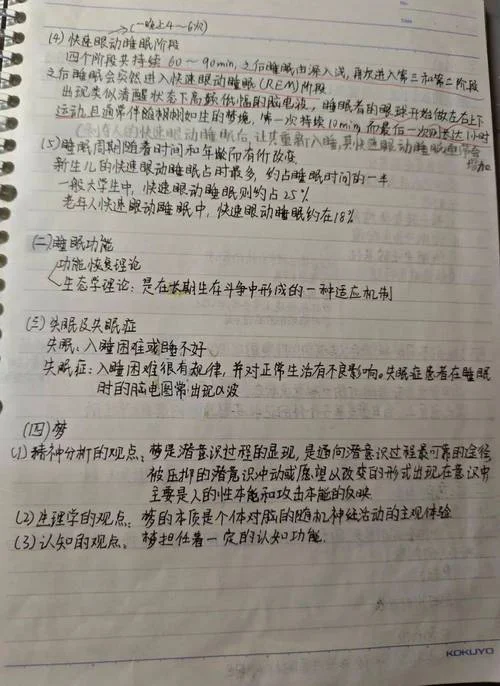 (一晚上4~6次)
(4)快速眼动睡眠阶段
四个阶段共持续60~90min,之后睡眠由深入浅,再次进入第三和第二阶段
之后睡眠会突然进入快速眼动睡眠(REM)阶段
出现类似清醒状态下高频低幅的脑电波,睡眠者的眼球开始做左右上下
运动,且通常伴随栩栩如生的梦境,第一次持续10min,而最后一次则长达1小时
人的快速眼动睡眠后,让其重新入睡,其快速眼动睡眠
增加
(5)睡眠周期随着时间和年龄而有所改变
新生儿的快速眼动睡眠占时最多,约占睡眠时间的一半
一般大学生中,快速眼动睡眠则约占25%
老年人快速眼动睡眠中,快速眼动睡眠约在18%
(二)睡眠功能
功能恢复理论
生态学理论:是在长期生存斗争中形成的一种适应机制
(三)失眠及失眠症
失眠:入睡困难或睡不好
失眠症:入睡困难很有规律,并对正常生活有不良影响。失眠症患者在睡眠
时的脑电图常出现α波
(四)梦
(1)精神分析的观点:梦是潜意识过程的显现,是通向潜意识过程最可靠的途径
被压抑的潜意识冲动或愿望以改变的形式出现在意识中
主要是人的性本能和攻击本能的反映
(2)生理学的观点:梦的本质是个体对脑的随机神经活动的主观体验
(3)认知的观点:梦担任着一定的认知功能.
KOKUYO